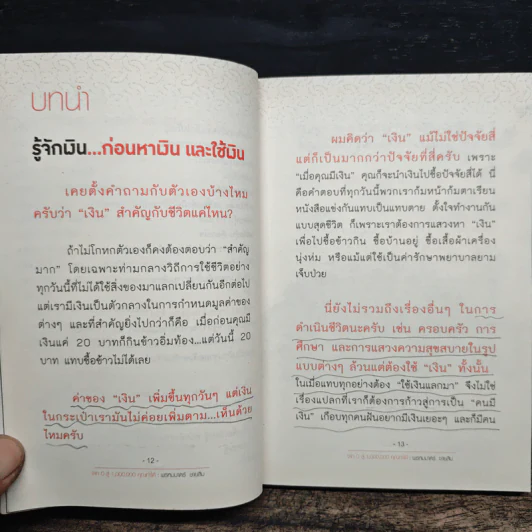 บทนำ
รู้จักเงิน...ก่อนหาเงิน และใช้เงิน
เคยตั้งคำถามกับตัวเองบ้างไหม
ครับว่า “เงิน” สำคัญกับชีวิตแค่ไหน?
ถ้าไม่โกหกตัวเองก็คงต้องตอบว่า “สำคัญ
มาก” โดยเฉพาะท่ามกลางวิถีการใช้ชีวิตอย่าง
ทุกวันนี้ที่ไม่ได้ใช้สิ่งของมาแลกเปลี่ยนกันอีกต่อไป
แต่เรามีเงินเป็นตัวกลางในการกำหนดมูลค่าของ
ต่างๆ และที่สำคัญยิ่งไปกว่าก็คือ เมื่อก่อนคุณมี
เงินแค่ 20 บาทก็กินข้าวอิ่มท้อง...แต่วันนี้ 20
บาท แทบซื้อข้าวไม่ได้เลย
ค่าของ “เงิน” เพิ่มขึ้นทุกวันๆ แต่เงิน
ในกระเป๋าเรามันไม่ค่อยเพิ่มตาม...เห็นด้วย
ไหมครับ
- 12 -
ผมคิดว่า “เงิน” แม้ไม่ใช่ปัจจัยสี่
แต่ก็เป็นมากกว่าปัจจัยที่สี่ครับ เพราะ
“เมื่อคุณมีเงิน” คุณก็จะนำเงินไปซื้อปัจจัยสี่ได้ นี่
คือคำตอบที่ทุกวันนี้พวกเราก้มหน้าก้มตาเรียน
หนังสือแข่งกันแทบเป็นแทบตาย ตั้งใจทำงานกัน
แบบสุดชีวิต ก็เพราะเราต้องการแสวงหา “เงิน”
เพื่อไปซื้อข้าวกิน ซื้อบ้านอยู่ ซื้อเสื้อผ้าเครื่อง
นุ่งห่ม หรือแม้แต่ใช้เป็นค่ารักษาพยาบาลยาม
เจ็บป่วย
นี่ยังไม่รวมถึงเรื่องอื่นๆ ในการ
ดำเนินชีวิตนะครับ เช่น ครอบครัว การ
ศึกษา และการแสวงความสุขสบายในรูป
แบบต่างๆ ล้วนแต่ต้องใช้ “เงิน” ทั้งนั้น
ในเมื่อแทบทุกอย่างต้อง “ใช้เงินแลกมา” จึงไม่ใช่
เรื่องแปลกที่เราก็ต้องการก้าวสู่การเป็น “คนมี
เงิน” เกือบทุกคนฝันอยากมีเงินเยอะๆ และก็มีคน
- 13 -